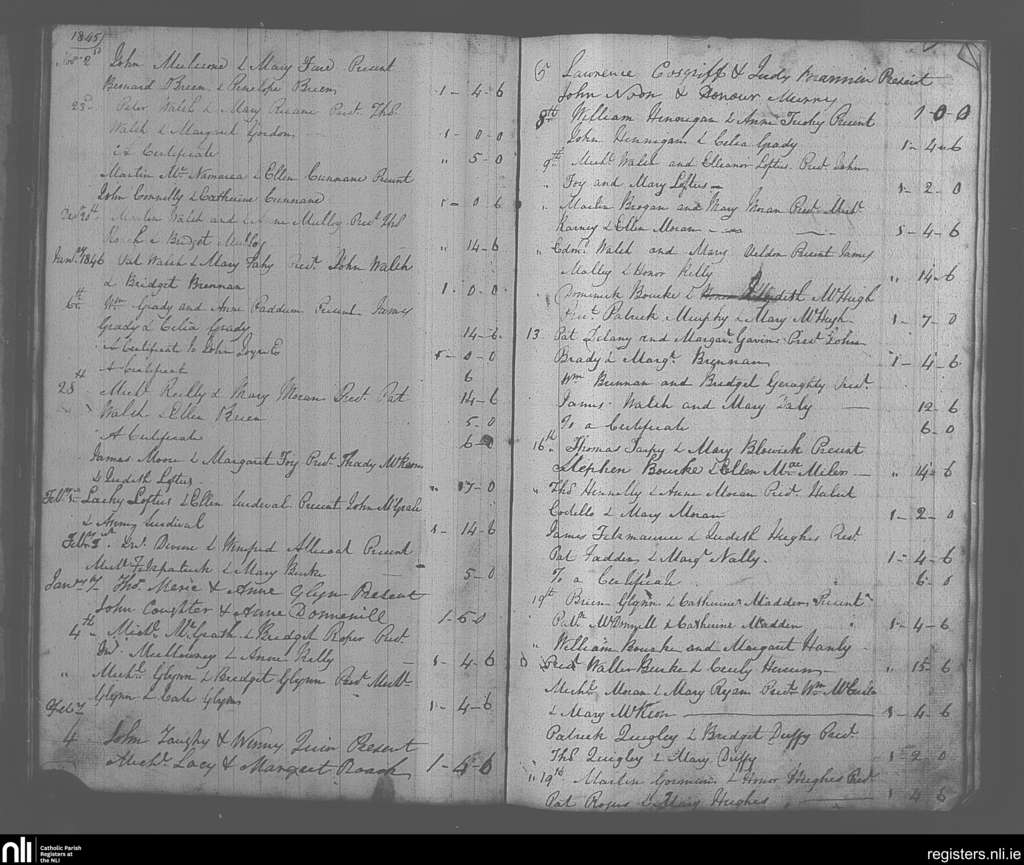 1845
Novr 2d John Mulrone & Mary Fare Present
Bernard OBrien & Penelope Brien 1-4-6
23d Peter Walsh & Mary Ruane Prest. Ths
Walsh & Margret Gordon 1-0-0
a Certificate " 5-0
Martin Mc Namara & Ellen Cunnane Present
John Connolly & Catherine Cunnane 1-0-6
Decr 20th Martin Walsh and Mulloy Prest Ths
& Bridget Mulloy " 14-6
Janry 1846 Pat Walsh & Mary Fahy Prest. John Walsh
& Bridget Brennan 1-0-0
6th Wm Grady and Anne Padden Present James
Grady & Celia Grady 14-6
A Certificate to John Joyce 5-0-0
A Certificate 6
28th Michl Reilly & Mary Moran Prest Pat 14-6
Walsh & Ellen Brien 5-0
A Certificate 6-0
James Moore & Margaret Foy Prest Thady McKeon
& Judith Loftus " 17-0
Feby 1st Lacky Loftus & Ellen Present John McGrale
& 1-14-6
Feby 3rd & Winifred Present
Michl Fitzpatrick & Mary Burke 5-0
Janry 7 Thos. & Anne Glyn Present
John Coughter & Anne 1-5-0
4th Michl McGrath & Bridget Roper Prest
Jno. Mullowney & Anne Kelly 1-4-6
" Michl Glynn & Bridget Glynn Prest Michl
Glynn & Cate Glynn 1-4-6
Feby
4 John Taughy & Winny Quin Present
Michl. Lacy & Margret Roach 1-4-6
5 Lawrence Cosgriff & Judy Brannin Present
John Noon & Honour Murry 1 0 0
8th William Hinnigan & Anne Present
John Hinnigan & Celia Grady 1-4-6
9th Michl Walsh and Elleanor Loftus Prest John
" Foy and Mary Loftus 1-2-0
" Martin Brogan and Mary Moran Prest Michl
Karney & Ellen Moran 1-4-6
" Edmd Walsh and Mary Present James
Malley & Honor Kelly " 14-6
" Dominick Bourke & Judith McHugh
Prest Patrick Murphy & Mary McHugh 1-7-0
13 Pat Delany and Margart Gavin Prest John
Brady & Margt. Brennan 1-4-6
Wm Brennan and Bridget Geraghty Prest
James Walsh and Mary Daly 12-6
To a Certificate 6-0
16th Thomas & Mary Blowick Present
Stephen Bourke & Ellen " 14-6
" Ths Hennelly & Anne Moran Prest Walter
Costello & Mary Moran 1-2-0
James Fitzmaurice & Judith Hughes Prest
Pat Fadden & Margt Nally. 1-4-6
To a Certificate 6-0
19th Brien Glynn & Catherine Madden Present
Patk. & Catherine Madden 1-4-6
" William Bourke and Margaret Hanly
Prest Walter Burke & Cecily " 15-6
Michl Moran & Mary Ryan Prest Wm
& Mary McKeon 1-4-6
Patrick Quigley & Bridget Duffy Prest
Ths Quigley & Mary Duffy 1-2-0
" 19th Martin Gorman & Honor Hughes Prest
Pat Rogers & Mary Hughes 1 4 6
nli Catholic Parish
Registers at
the NLI
registers.nli.ie